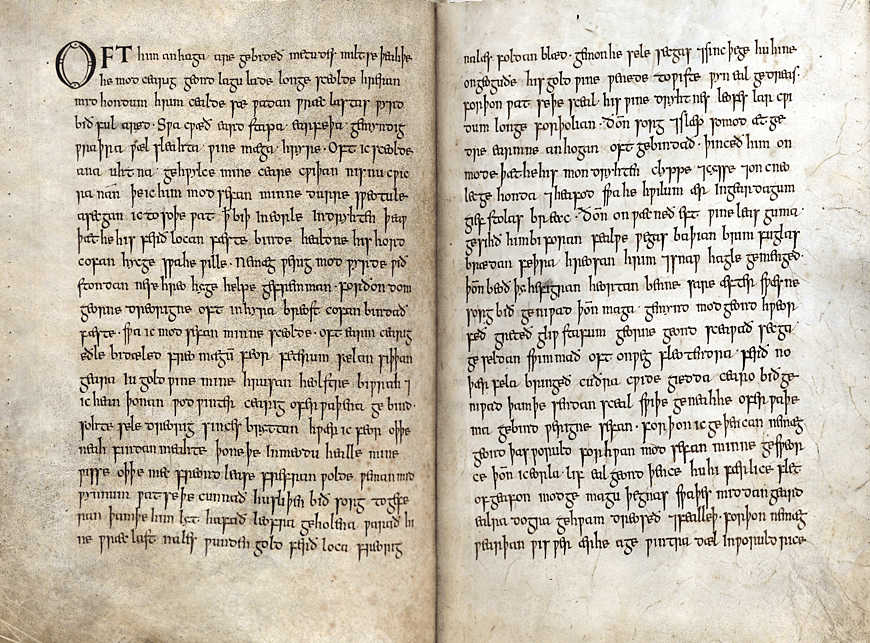 OFT him anhaga are gebideð metudes miltse þeahþe
he mod cearig geond lagu lade longe sceolde hreran
mid hondum hrim cealde sæ ƿadan ƿræc lastas ƿyrd
bið ful aræd · Sƿa cƿæð eard stapa · earfeþa · gemyndig
ƿraþra ƿæl sleahta · ƿine mæga · hryre · Oft ic sceolde
ana uhtna · gehƿylce mine ceare cƿiþan nis nu cƿic
ra nan̄ þe ic him mod sefan minne durre sƿeotule
asecgan ic to soþe ƿat ꝥ biþ ineorle indryhten þeaƿ
þæt he his ferð locan fæste binde healdne his hord
cofan hycge sƿa he ƿille · Ne mæg ƿerig mod ƿyrde ƿið
stondan ne se hreo hyge helpe gefremman · forðon dom
georne dreorigne oft inhyra breost cofan bindað
fæste · sƿa ic mod sefan minne sceolde · oft earm cearig
eðle bidæled freo magū feor feterum sælan siþþan
geara iu gold ƿine mine hrusan heolstre biƿrah ⁊
ic hean þonan ƿod ƿinter cearig ofer ƿaþena ge bind ·
sohte sele dreorig sinces bryttan hƿær ic feor oþþe
neah findan meahte þone þe inmeodu healle mine
ƿisse oþþe mec freond lease frefran ƿolde ƿeman mid
ƿynnum ƿat se þe cunnað hu sliþen bið sorg to gefe
ran þam þe him lyt hafað leofra geholena ƿarað hi
ne ƿræc last nales ƿunden gold ferð loca freorig
nalæs foldan blæd · gemon he sele secgas ⁊ sinc þege hu hine
on geoguðe his gold ƿine ƿenede to ƿiste ƿyn eal gedreas
forþon ƿat se þe sceal his ƿine dryhtnes leofes lar cƿi
dum longe forþolian · ðoñ sorg ⁊ slæp somod æt gæ
dre earmne anhogan oft gebindað · þinceð him on
mode þæt he his mon dryhten clyppe ⁊ cysse ⁊ on cneo
lecge honda ⁊ heafod sƿa he hƿilum ær in geardagum
gief stolas breac · ðoñ onƿæcneð eft ƿine leas guma ·
gesihð him biforan fealƿe ƿegas baþian brim fuglas
brædan feþra hreosan hrim ⁊ snaƿ hagle gemenged ·
þoñ beoð þy hefigran heortan benne sare æfter sƿæsne
sorg bið geniƿad þoñ maga · gemynd mod geond hƿeor
feð greteð gliƿ stafum georne geond sceaƿað secga ·
ge seldan sƿimmað oft onƿeg fleotendra · ferð no
þær fela bringeð cuðra cƿide giedda cearo bið ge
niƿad þam þe sendan sceal sƿiþe geneahhe ofer ƿaþe
ma gebind ƿerigne sefan · forþon ic ge þencan ne mæg
geond þas ƿoruld forhƿan mod sefan minne gesƿeor
ce þoñ ic eorla · lif eal geond þence hu hi færlice flet
ofgeafon modge magu þegnas sƿa þes middan geard
ealra dogra gehƿam dreoseð ⁊ fealleþ · forþon ne mæg
ƿearþan ƿis ƿer ær he age ƿintra dæl inƿoruld rice